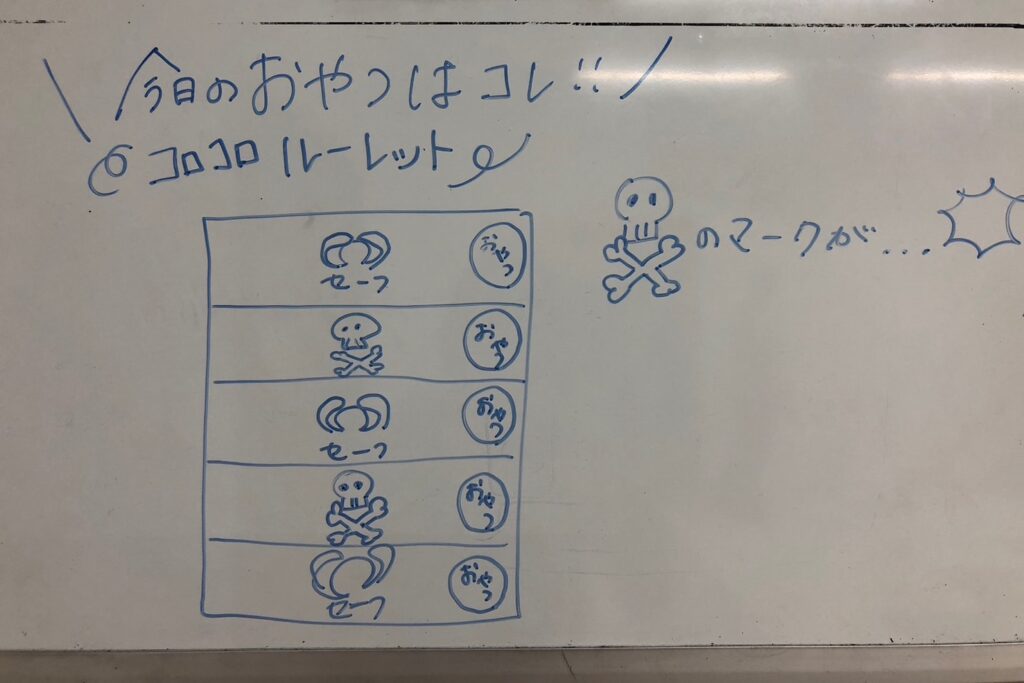 今日のおやつはコレ!!
コロコロルーレット
のマークが...
セーフ おやつ
おやつ
セーフ おやつ
おやつ
セーフ おやつ